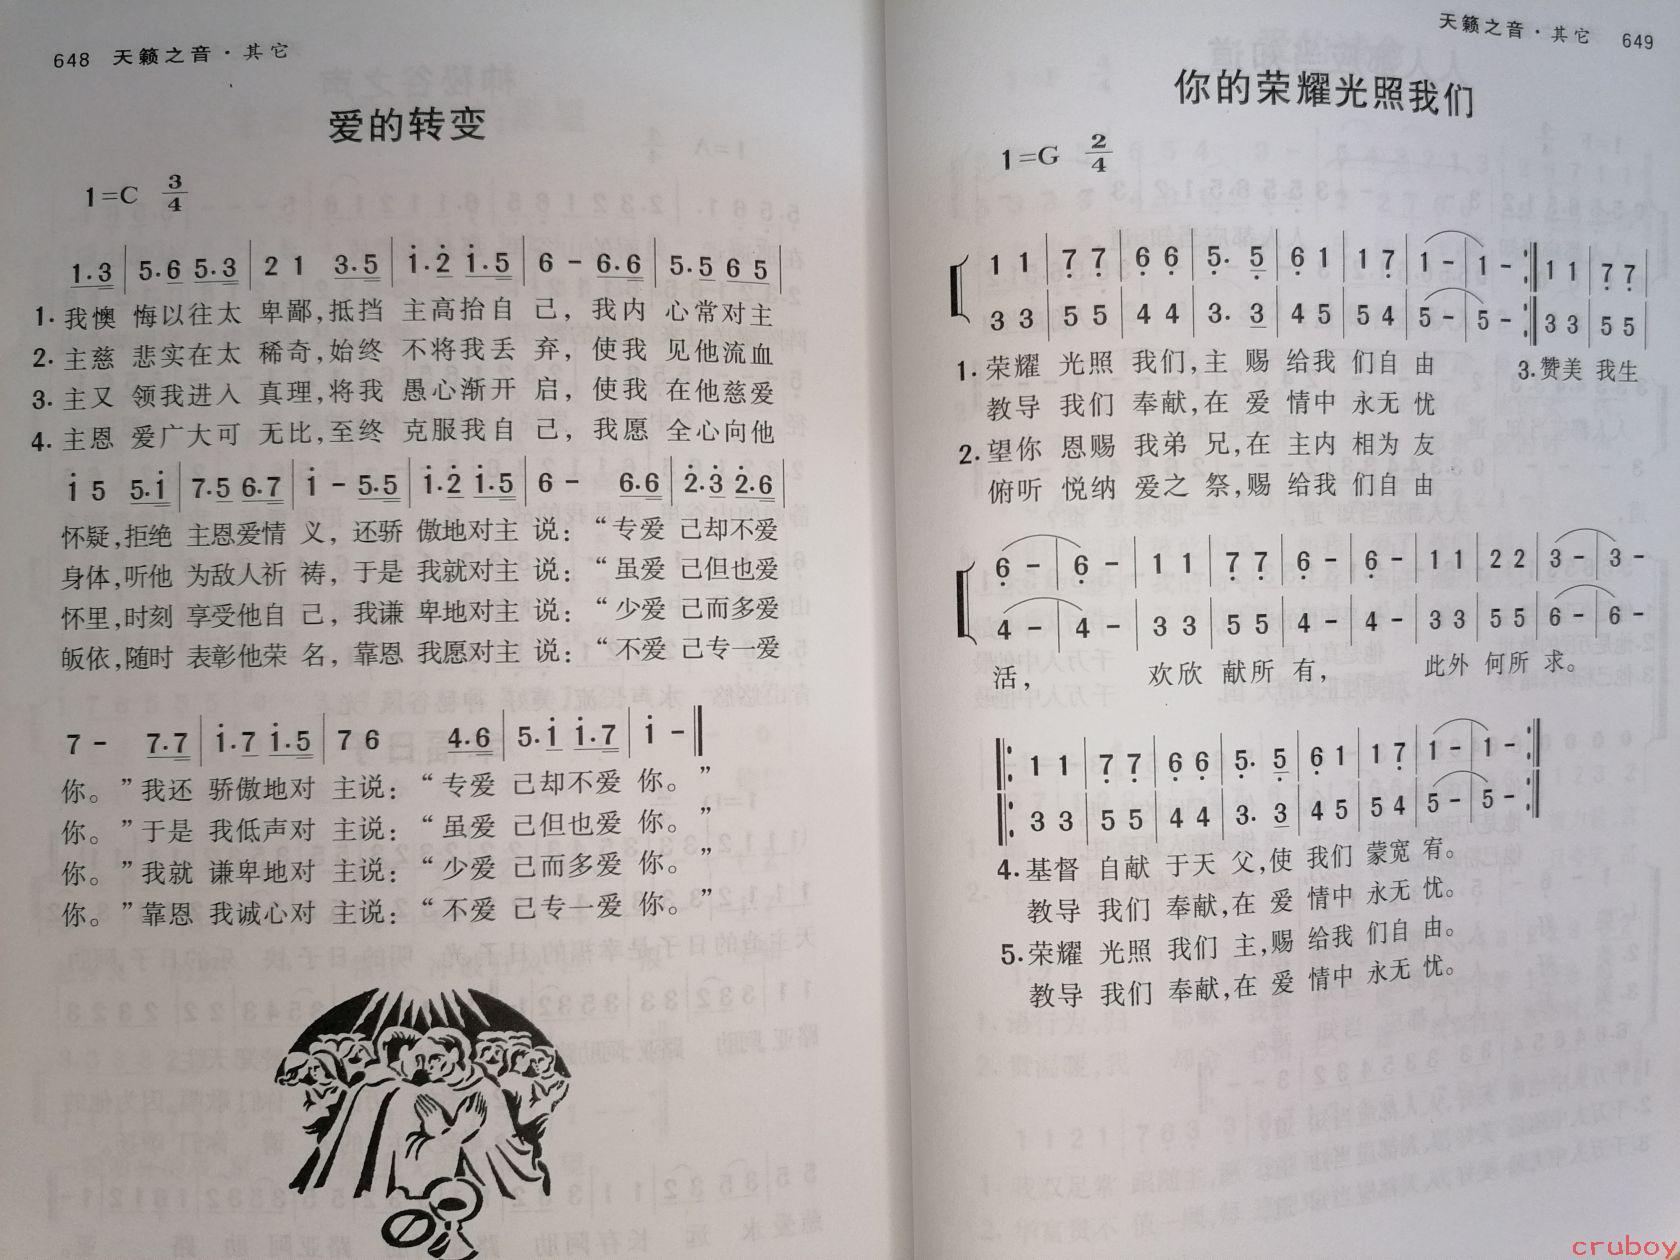 648 天籁之音·其它
爱的转变
1=C 3/4
1.3 | 5.6 5.3 | 2 1 3.5 | i.2 i.5 | 6 - 6.6 | 5.5 6 5 |
1. 我懊 悔以往太 卑鄙,抵挡 主高抬自 己, 我内 心常对主
2. 主慈 悲实在太 稀奇,始终 不将我丢 弃, 使我 见他流血
3. 主又 领我进入 真理,将我 愚心渐开 启, 使我 在他慈爱
4. 主恩 爱广大可 无比,至终 克服我自 己, 我愿 全心向他
i 5 5.i | 7.5 6.7 | i - 5.5 | i.2 i.5 | 6 - 6.6 | 2.3 2.6 |
怀疑,拒绝 主恩爱情 义, 还骄 傲地对主 说: “专爱 己却不爱
身体,听他 为敌人祈 祷, 于是 我就对主 说: “虽爱 己但也爱
怀里,时刻 享受他自 己, 我谦 卑地对主 说: “少爱 己而多爱
皈依,随时 表彰他荣 名, 靠恩 我愿对主 说: “不爱 己专一爱
7 - 7.7 | i.7 i.5 | 7 6 4.6 | 5.i i.7 | i - ‖
你。”我还 骄傲地对 主说: “专爱 己却不爱 你。”
你。”于是 我低声对 主说: “虽爱 己但也爱 你。”
你。”我就 谦卑地对 主说: “少爱 己而多爱 你。”
你。”靠恩 我诚心对 主说: “不爱 己专一爱 你。”
天籁之音·其它 649
你的荣耀光照我们
1=G 2/4
1 1 | 7 7 | 6 6 | 5. 5 | 6 1 | 1 7 | 1 - | 1 - :‖ 1 1 | 7 7 |
3 3 | 5 5 | 4 4 | 3. 3 | 4 5 | 5 4 | 5 - | 5 - :‖ 3 3 | 5 5 |
1. 荣耀 光照 我们,主 赐 给我 们自 由 3.赞美 我生
教导 我们 奉献,在 爱 情中 永无 忧
2. 望你 恩赐 我弟 兄,在 主内 相为 友
俯听 悦纳 爱之 祭,赐 给我 们自 由
6 - | 6 - | 1 1 | 7 7 | 6 - | 6 - | 1 1 | 2 2 | 3 - | 3 -
4 - | 4 - | 3 3 | 5 5 | 4 - | 4 - | 3 3 | 5 5 | 6 - | 6 -
活, 欢欣 献所 有, 此外 何所 求。
‖: 1 1 | 7 7 | 6 6 | 5. 5 | 6 1 | 1 7 | 1 - | 1 - :‖
‖: 3 3 | 5 5 | 4 4 | 3. 3 | 4 5 | 5 4 | 5 - | 5 - :‖
4. 基督 自献 于天 父,使 我们 蒙宽 宥。
教导 我们 奉献,在 爱 情中 永无 忧。
5. 荣耀 光照 我们 主,赐 给我 们自 由。
教导 我们 奉献,在 爱 情中 永无 忧。
cruboy